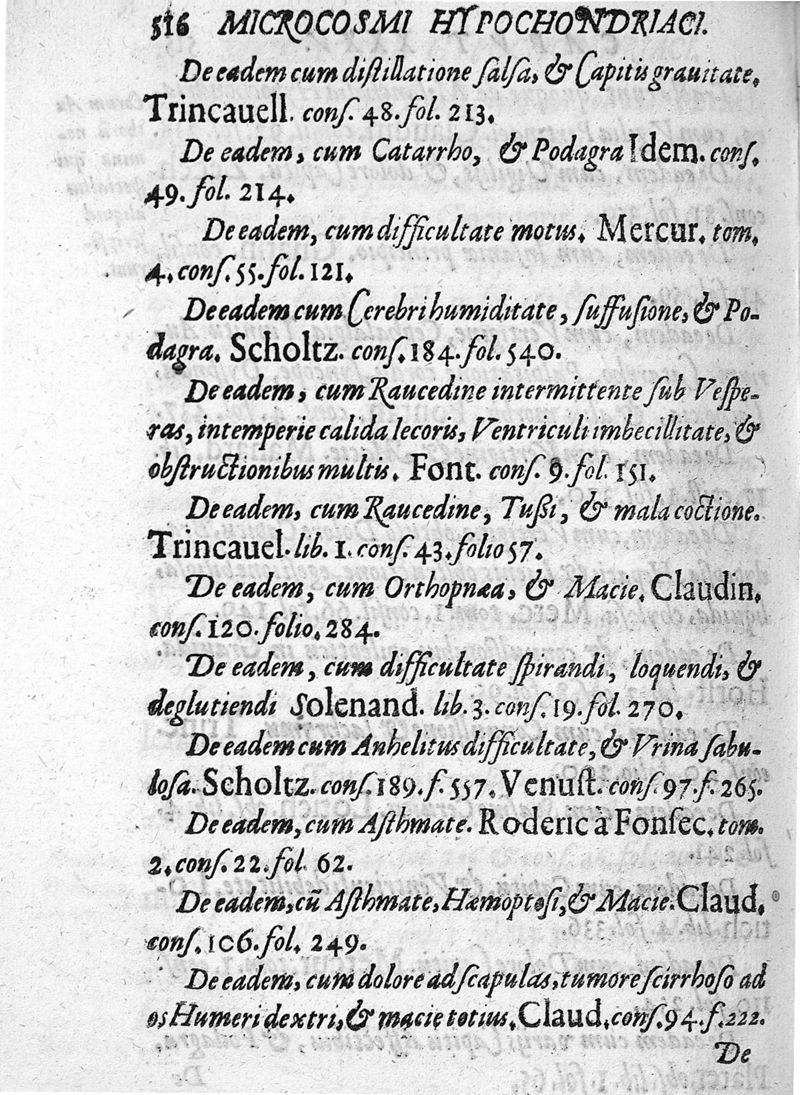 516 MICROCOSMI HYPOCHONDRIACI.
De eadem cum distillatione salsa, & Capitis grauitate,
Trincauell. conſ. 48. fol. 213.
De eadem, cum Catarrho, & Podagra Idem. conſ.
49. fol. 214.
De eadem, cum difficultate motus. Mercur. tom.
4. conſ. 55. fol. 121.
De eadem cum Cerebri humiditate, ſuffuſione, & Po-
dagra. Scholtz. conſ. 184. fol. 540.
De eadem, cum Raucedine intermittente ſub Veſpe-
ras, intemperie calida Iecoris, Ventriculi imbecillitate, &
obſtructionibus multis. Font. conſ. 9. fol. 151.
De eadem, cum Raucedine, Tußi, & mala coctione.
Trincauel. lib. 1. conſ. 43. folio 57.
De eadem, cum Orthopnæa, & Macie. Claudin.
conſ. 120. folio. 284.
De eadem, cum difficultate ſpirandi, loquendi, &
deglutiendi Solenand. lib. 3. conſ. 19. fol. 270.
De eadem cum Anhelitus difficultate, & Vrina ſabu-
loſa. Scholtz. conſ. 189. f. 557. Venuſt. conſ. 97. f. 265.
De eadem, cum Aſthmate. Roderic à Fonſec. tom.
2. conſ. 22. fol. 62.
De eadem, cũ Aſthmate, Hæmoptoſi, & Macie. Claud.
conſ. 106. fol. 249.
De eadem, cum dolore ad ſcapulas, tumore ſcirrhoſo ad
os Humeri dextri, & macie totius. Claud. conſ. 94. f. 222.
De